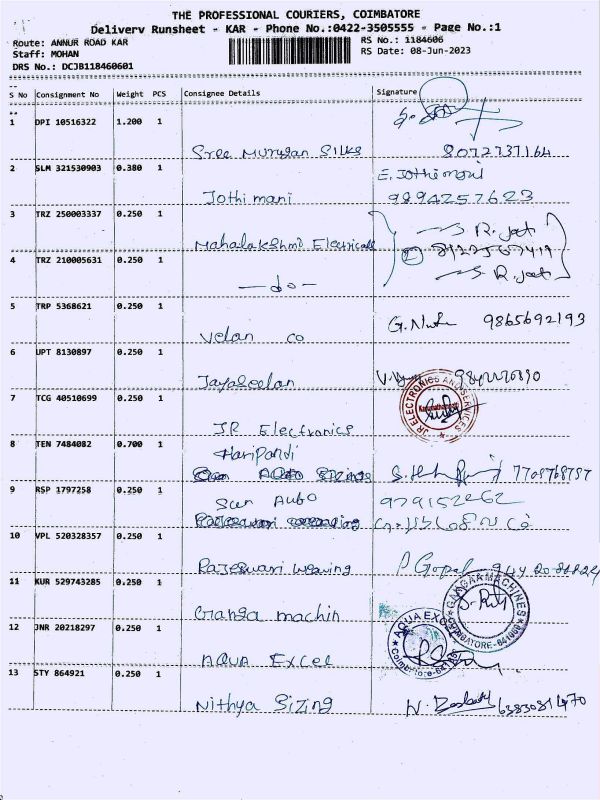 THE PROFESSIONAL COURIERS, COIMBATORE
Delivery Runsheet - KAR - Phone No.:0422-3505555 - Page No.:1
Route: ANNUR ROAD KAR
RS No.: 1184606
Staff: MOHAN
RS Date: 08-Jun-2023
DRS No.: DCJB118460601
S No Consignment No Weight PCS Consignee Details Signature
1 DPI 10516322 1.200 1
Sree Murugan Silks 8072737164
2 SLM 321530903 0.380 1 E. Jothimani
Jothi mani 9894257623
3 TRZ 250003337 0.250 1
Mahalakshmi Electricals
4 TRZ 210005631 0.250 1
—do—
5 TRP 5368621 0.250 1
Velan co 9865692193
6 UPT 8130897 0.250 1
Jayaseelan
7 TCG 40510699 0.250 1
JR ELECTRONICS AND SERVICES
JR Electronics
8 TEN 7484082 0.700 1 Haripandi
9 RSP 1797258 0.250 1 Sun Auto
10 VPL 520328357 0.250 1
Rajeswari weaving P Gopal
11 KUR 529743285 0.250 1
GANGAA MACHINES
COIMBATORE
Ganga machin
12 JNR 20218297 0.250 1
AQUA EXCEL
Coimbatore
AQUA Excel
13 STY 864921 0.250 1
Nithya Sizing